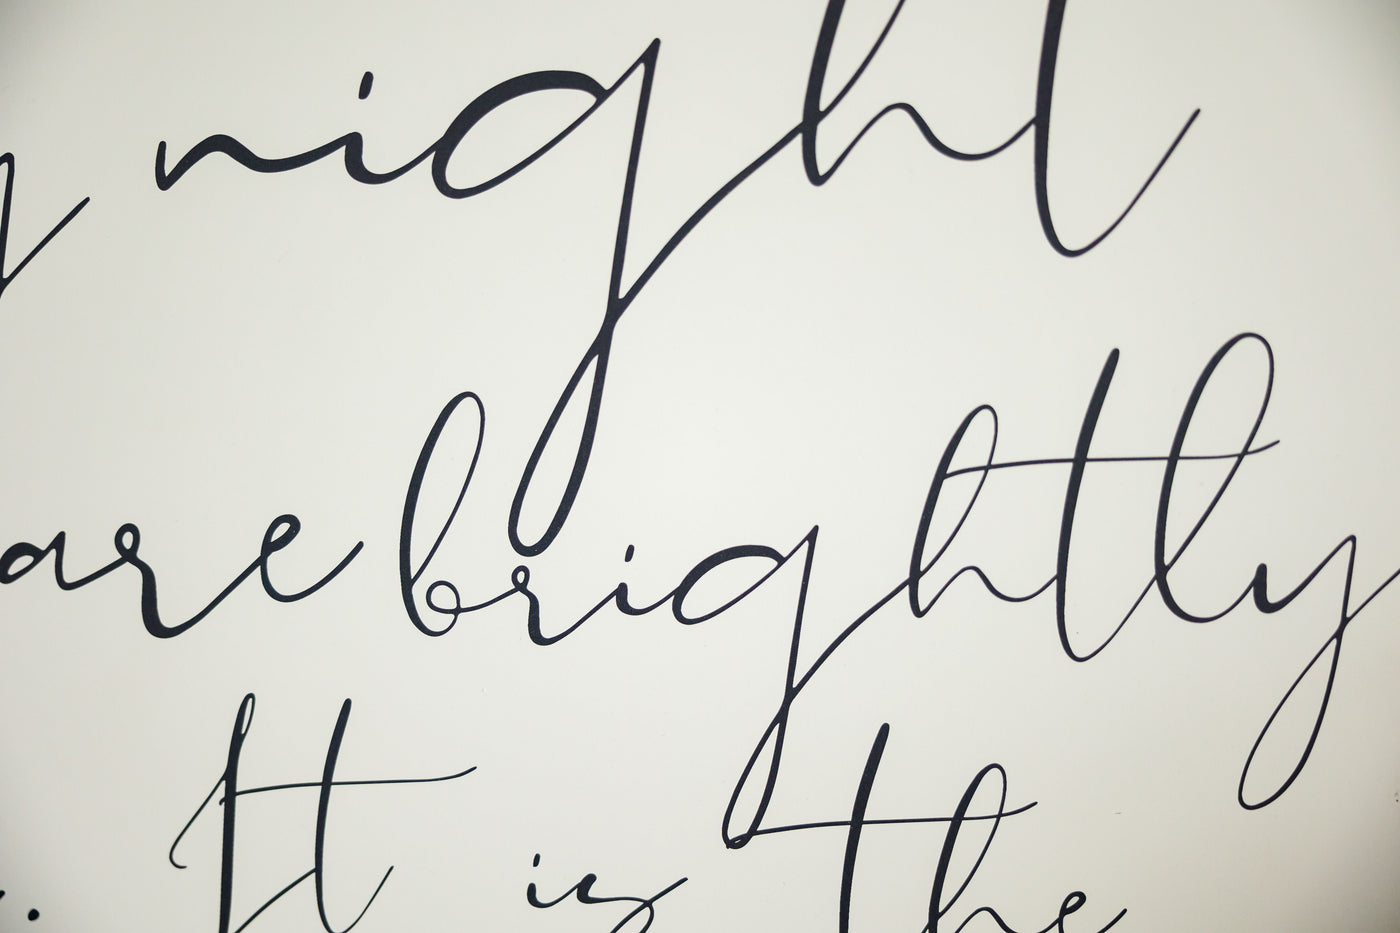 night
are brightly
. It is the